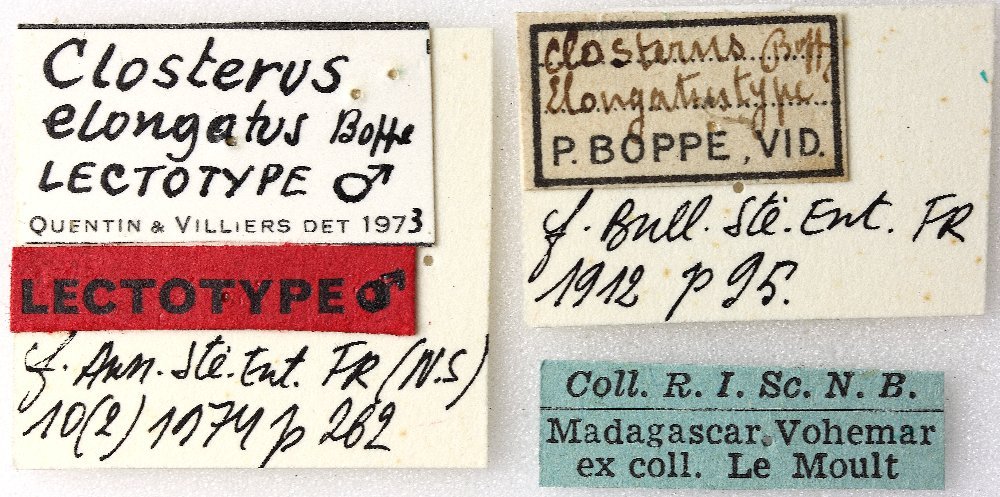 Closterus
elongatus Boppe
LECTOTYPE ♂
QUENTIN & VILLIERS DET 1973
LECTOTYPE ♂
f. Ann. Sté. Ent. FR (N.S)
10(2) 1974 p 262
Closterus Bopp
Elongatus type
P. BOPPE, VID.
f. Bull. Sté. Ent. FR
1912 p 95.
Coll. R. I. Sc. N. B.
Madagascar. Vohemar
ex coll. Le Moult